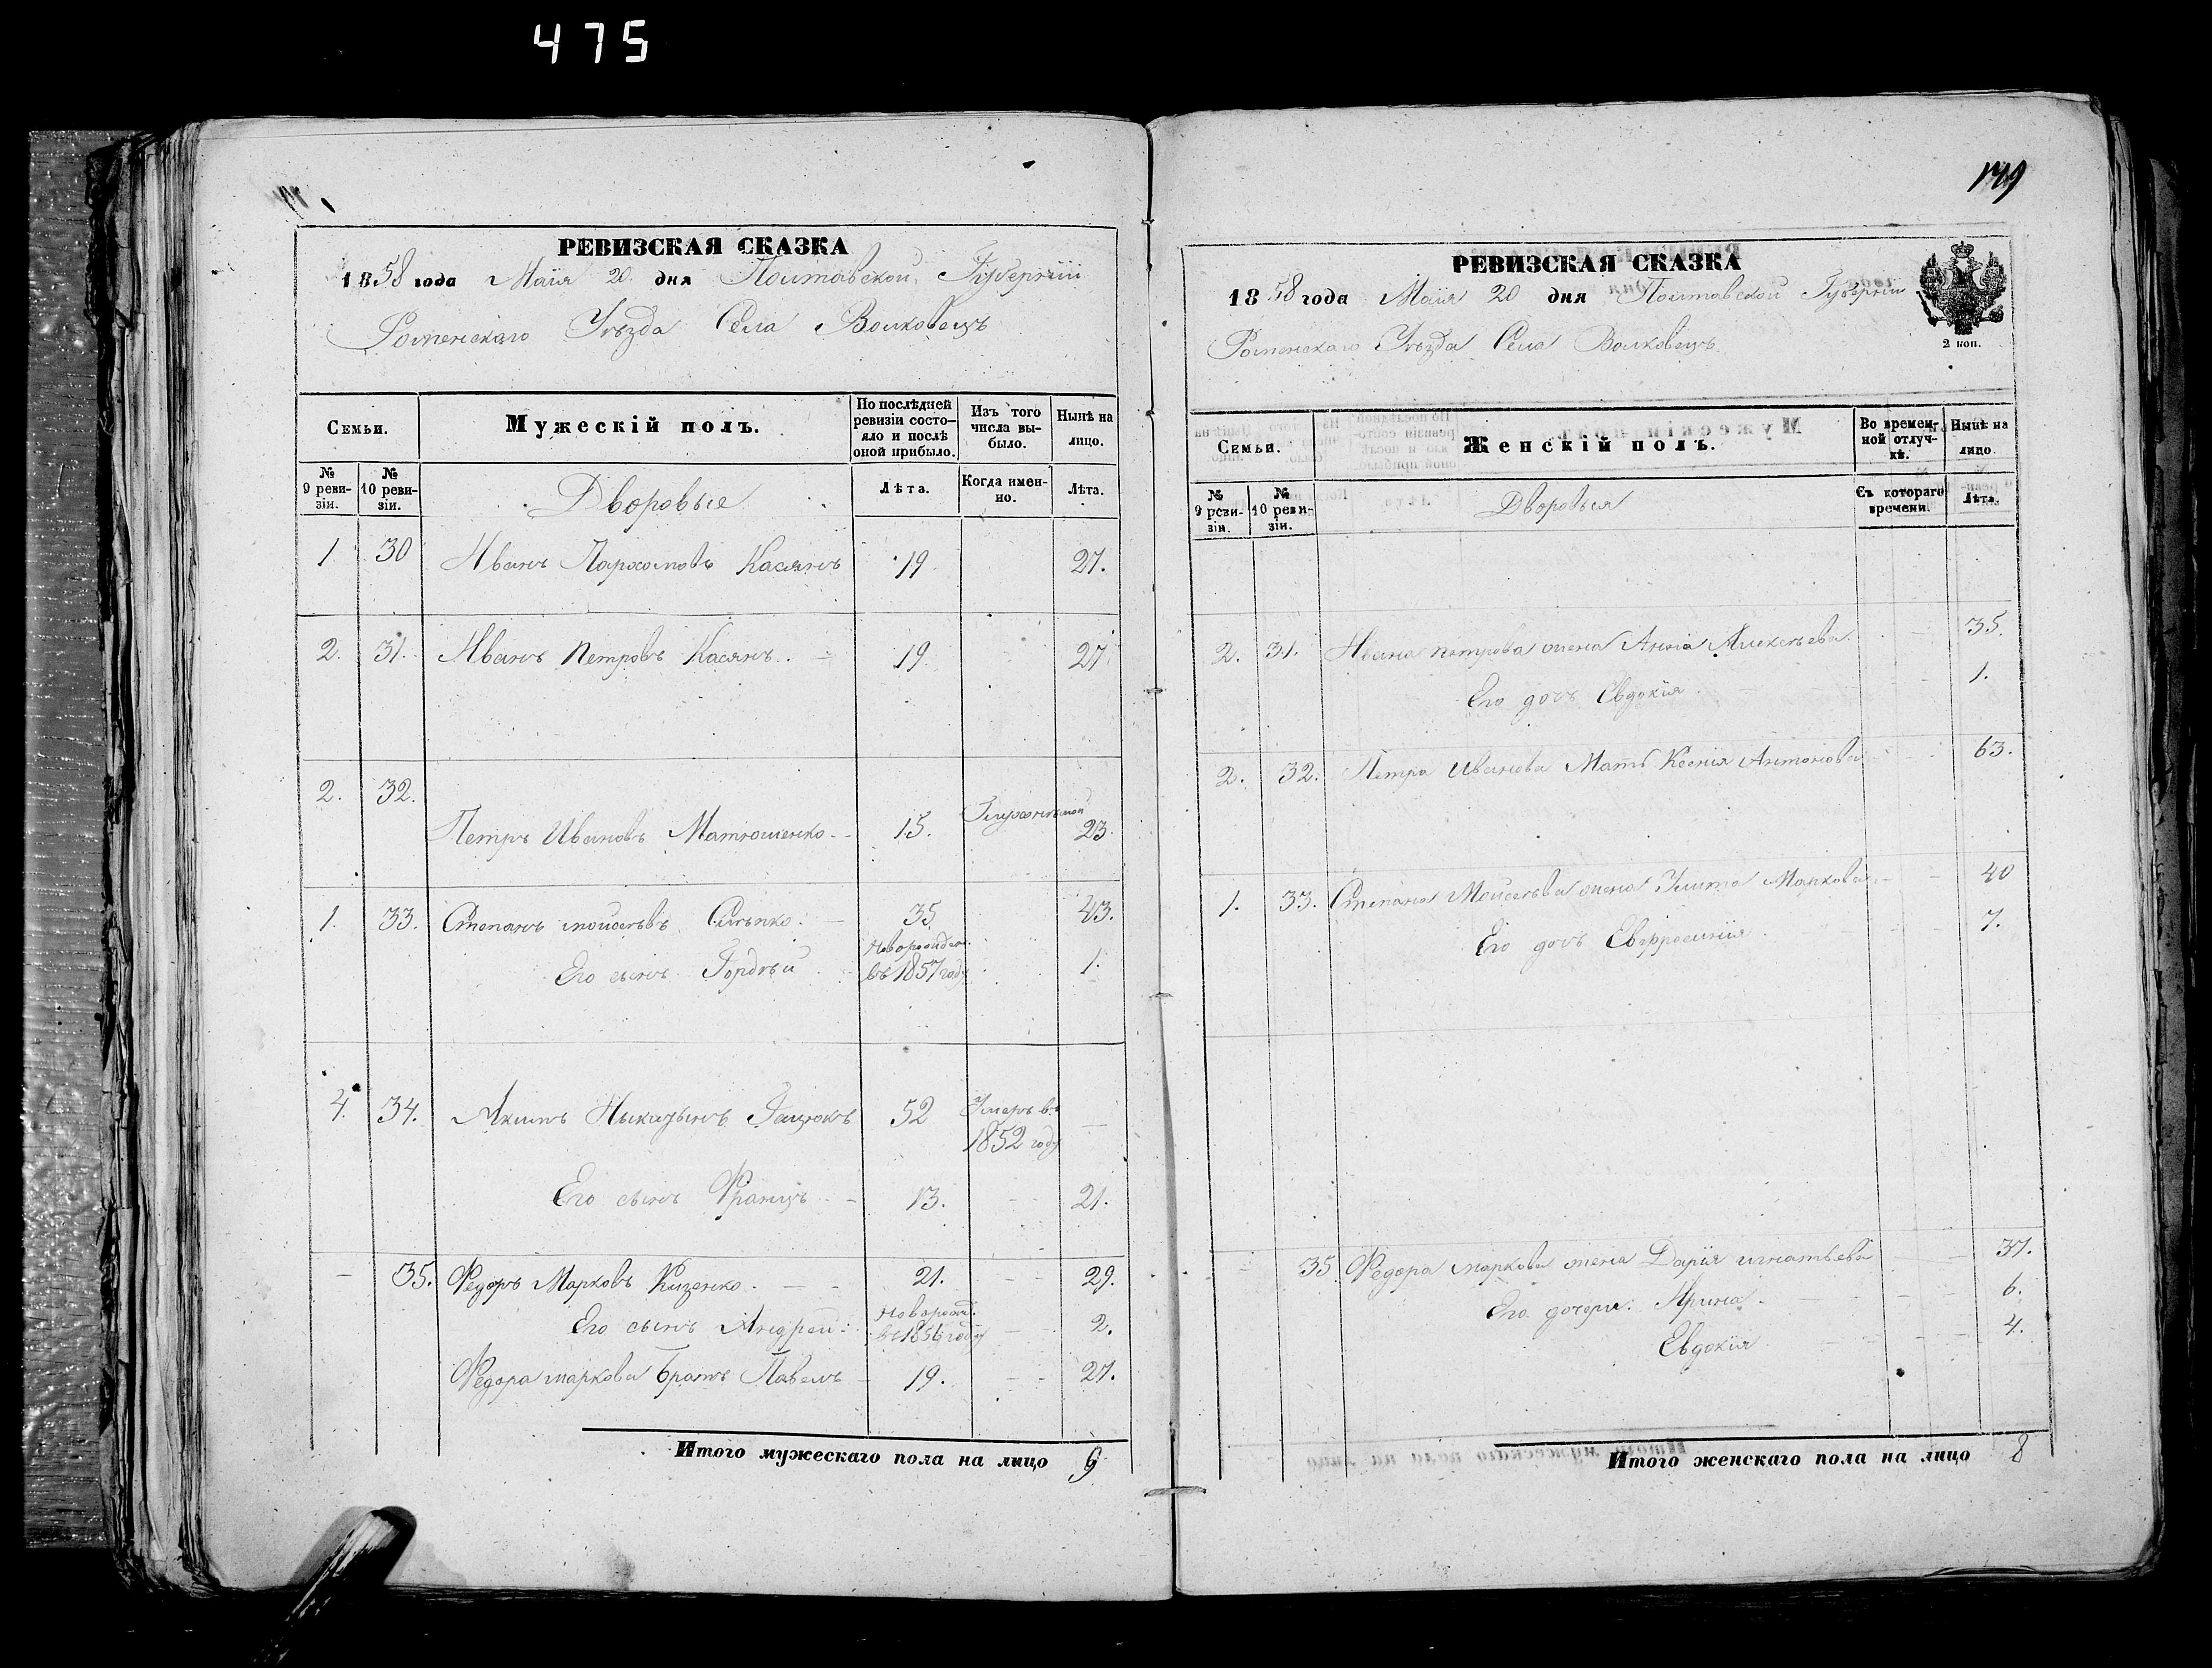 475
РЕВИЗСКАЯ СКАЗКА
1858 года Маія 20 дня Полтавской Губерніи
Роменскаго Уѣзда Села Волковецъ
Семьи.
Мужескій полъ.
По послѣдней ревизіи состо-
яло и послѣ
оной прибыло.
Изъ того
числа вы-
было.
Нынѣ на
лицо.
№
9 реви-
зіи.
№
10 реви-
зіи.
Дворовые
Лѣта.
Когда имен-
но.
Лѣта.
1 30 Иванъ Пархомовъ Касянъ 19 27.
2. 31. Иванъ Петровъ Касянъ 19 27.
2. 32.
Петръ Ивановъ Матюшенко 15. 23.
1. 33. Степанъ Моисѣевъ 35 43.
Его сынъ Гордѣй
въ 1857 году 1.
4. 34. Акимъ 52 Умеръ въ
1852 году
Его сынъ Францъ 13. 21.
35. Федоръ Марковъ 21. 29.
Его сынъ Андрей
въ 1856 году 2.
Федора Маркова Братъ Павелъ 19. 27.
Итого мужескаго пола на лицо 9
РЕВИЗСКАЯ СКАЗКА
1858 года Маія 20 дня Полтавской Губерніи
Роменскаго Уѣзда Села Волковецъ
2 коп.
Семьи.
Женскій полъ.
Во времен-
ной отлуч-
кѣ.
Нынѣ на
лицо.
№
9 реви-
зіи.
№
10 реви-
зіи.
Дворовыя
Съ котораго
времени.
Лѣта.
2. 31. Ивана Петрова жена Анна Алексѣева 35.
Его дочь Евдокія 1.
2. 32. Петра Иванова Мать Ксенія Антонова 63.
1. 33. Степана Моисѣева жена Улита Маркова 40
Его дочь Евфросинія 7.
35 Федора Маркова жена Дарія Игнатьева 37.
Его дочери: Ярина 6.
Евдокія 4.
Итого женскаго пола на лицо 8